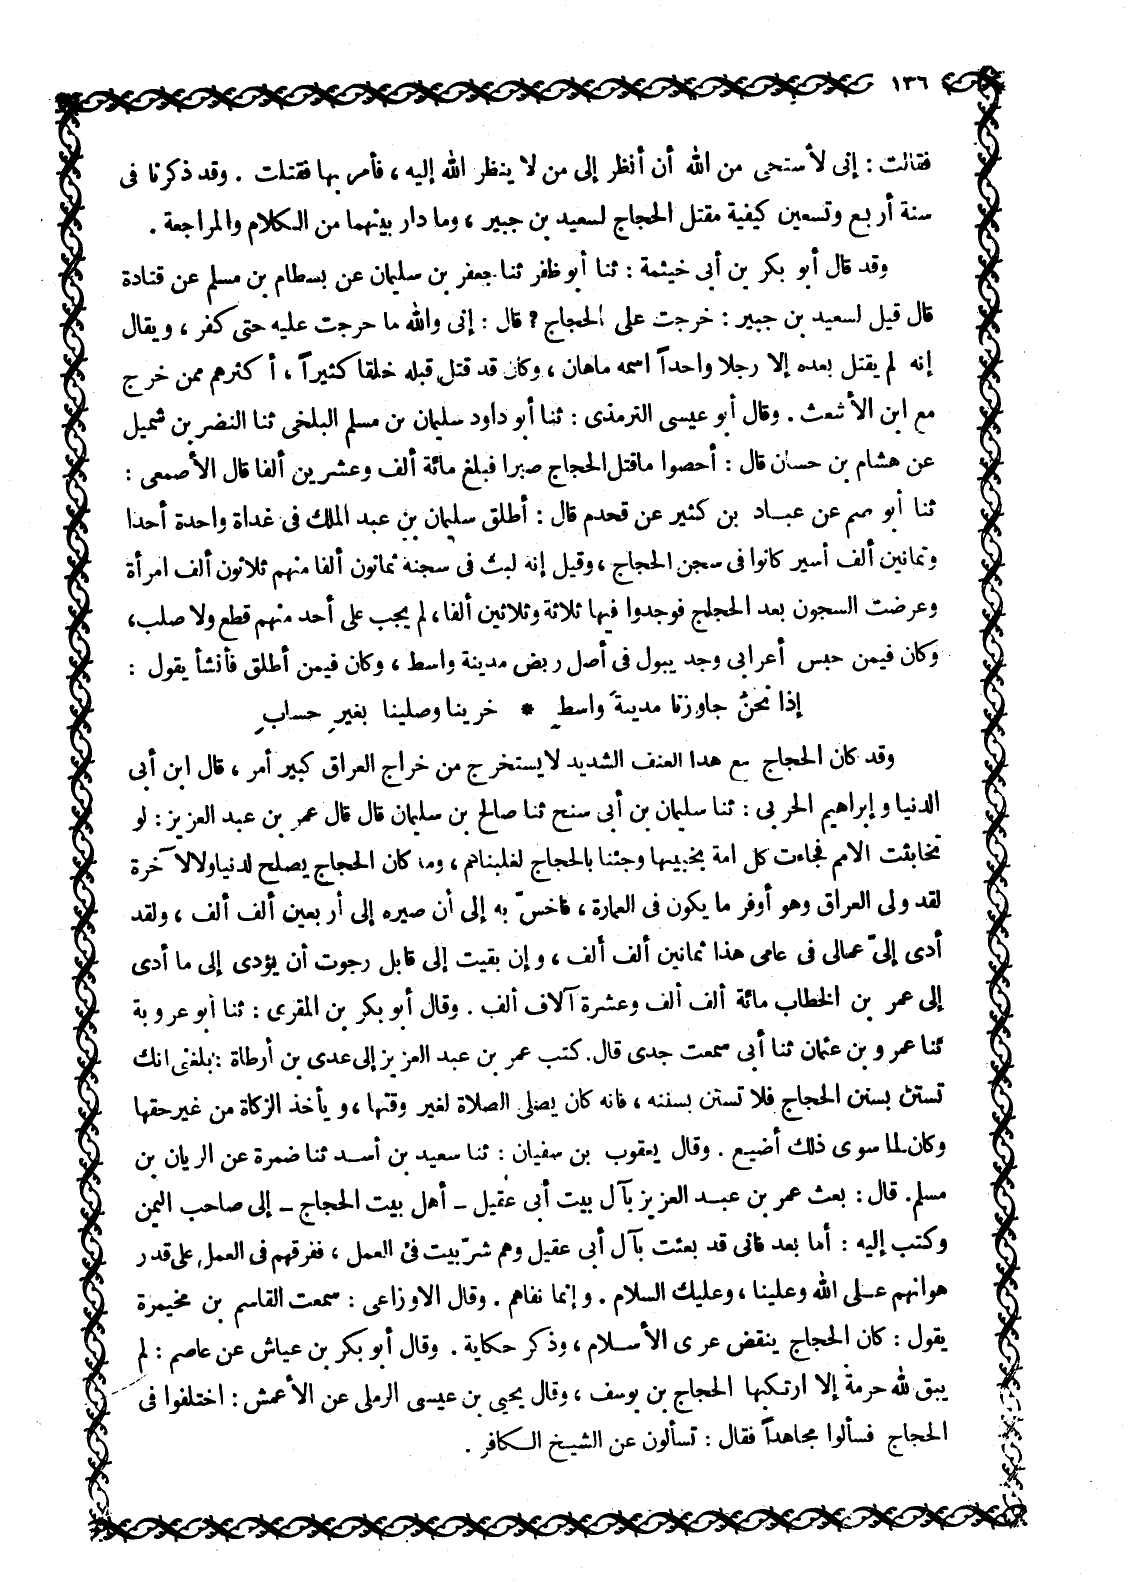 ١٣٦
فقالت : إنى لأستحى من الله أن أنظر إلى من لا ينظر الله إليه ، فأمر بها فقتلت . وقد ذكرنا فى
سنة أربع وتسعين كيفية مقتل الحجاج لسعيد بن جبير ، وما دار بينهما من الكلام والمراجعة .
وقد قال أبو بكر بن أبى خيثمة : ثنا أبو ظفر ثنا جعفر بن سليمان عن بسطام بن مسلم عن قتادة
قال قيل لسعيد بن جبير : خرجت على الحجاج ؟ قال : إنى والله ما خرجت عليه حتى كفر ، ويقال
إنه لم يقتل بعده إلا رجلا واحداً اسمه ماهان ، وكان قد قتل قبله خلقا كثيراً ، أكثرهم ممن خرج
مع ابن الأشعث . وقال أبو عيسى الترمذى : ثنا أبو داود سليمان بن مسلم البلخى ثنا النضر بن شميل
عن هشام بن حسان قال : أحصوا ماقتل الحجاج صبرا فبلغ مائة ألف وعشرين ألفا قال الأصمعى :
ثنا أبو صم عن عباد بن كثير عن قحدم قال : أطلق سليمان بن عبد الملك فى غداة واحدة أحدا
وثمانين ألف أسير كانوا فى سجن الحجاج ، وقيل إنه لبث فى سجنه ثمانون ألفا منهم ثلاثون ألف امرأة
وعرضت السجون بعد الحجاج فوجدوا فيها ثلاثة وثلاثين ألفا ، لم يجب على أحد منهم قطع ولا صلب ،
وكان فيمن حبس أعرابى وجد يبول فى أصل ربض مدينة واسط ، وكان فيمن أطلق فأنشأ يقول :
إذا نحنُ جاوزنا مدينةَ واسطٍ * خرينا وصلينا بغيرِ حسابِ
وقد كان الحجاج مع هذا العنف الشديد لايستخرج من خراج العراق كبير أمر ، قال ابن أبى
الدنيا وإبراهيم الحربى : ثنا سليمان بن أبى سنح ثنا صالح بن سليمان قال قال عمر بن عبد العزيز : لو
تخابثت الامم فجاءت كل امة بخبيثها وجئنا بالحجاج لغلبناهم ، وما كان الحجاج يصلح لدنيا ولا لآخرة
لقد ولى العراق وهو أوفر ما يكون فى العمارة ، فاخسّ به إلى أن صيره إلى أربعين ألف ألف ، ولقد
أدى إلىّ عمالى فى عامى هذا ثمانين ألف ألف ، وإن بقيت إلى قابل رجوت أن يؤدى إلى ما أدى
إلى عمر بن الخطاب مائة ألف ألف وعشرة آلاف ألف . وقال أبو بكر بن المقرى : ثنا أبو عروبة
ثنا عمرو بن عثمان ثنا أبى سمعت جدى قال . كتب عمر بن عبد العزيز إلى عدى بن أرطاة : بلغنى انك
تستن بسنن الحجاج فلا تستن بسننه ، فانه كان يصلى الصلاة لغير وقتها ، ويأخذ الزكاة من غير حقها
وكان لما سوى ذلك أضيع . وقال يعقوب بن سفيان : ثنا سعيد بن أسد ثنا ضمرة عن الريان بن
مسلم . قال : بعث عمر بن عبد العزيز بآل بيت أبى عقيل ـ أهل بيت الحجاج ـ إلى صاحب اليمن
وكتب إليه : أما بعد فانى قد بعثت بآل أبى عقيل وهم شرّ بيت فى العمل ، ففرقهم فى العمل على قدر
هوانهم على الله وعلينا ، وعليك السلام . وإنما نفاهم . وقال الاوزاعى : سمعت القاسم بن مخيمرة
يقول : كان الحجاج ينقض عرى الأسلام ، وذكر حكاية . وقال أبو بكر بن عياش عن عاصم : لم
يبق لله حرمة إلا ارتكبها الحجاج بن يوسف ، وقال يحيى بن عيسى الرملى عن الأعمش : اختلفوا فى
الحجاج فسألوا مجاهداً فقال : تسألون عن الشيخ الكافر .